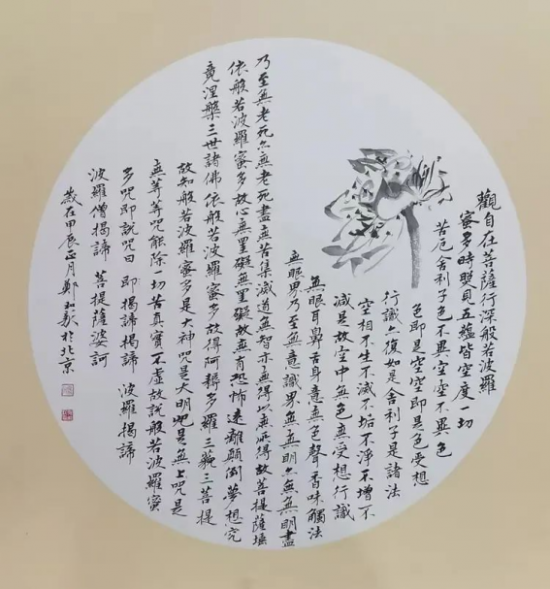 觀自在菩薩行深般若波羅
蜜多時照見五蘊皆空度一切
苦厄舍利子色不異空空不異色
色即是空空即是色受想
行識亦復如是舍利子是諸法
空相不生不滅不垢不淨不增不
減是故空中無色無受想行識
無眼耳鼻舌身意無色聲香味觸法
無眼界乃至無意識界無無明亦無無明盡
乃至無老死亦無老死盡無苦集滅道無智亦無得以無所得故菩提薩埵
依般若波羅蜜多故心無罣礙無罣礙故無有恐怖遠離顛倒夢想究
竟涅槃三世諸佛依般若波羅蜜多故得阿耨多羅三藐三菩提
故知般若波羅蜜多是大神咒是大明咒是無上咒是
無等等咒能除一切苦真實不虛故說般若波羅蜜
多咒即說咒曰 即揭諦揭諦 波羅揭諦
波羅僧揭諦 菩提薩婆訶
歲在甲辰正月鄭 於北京